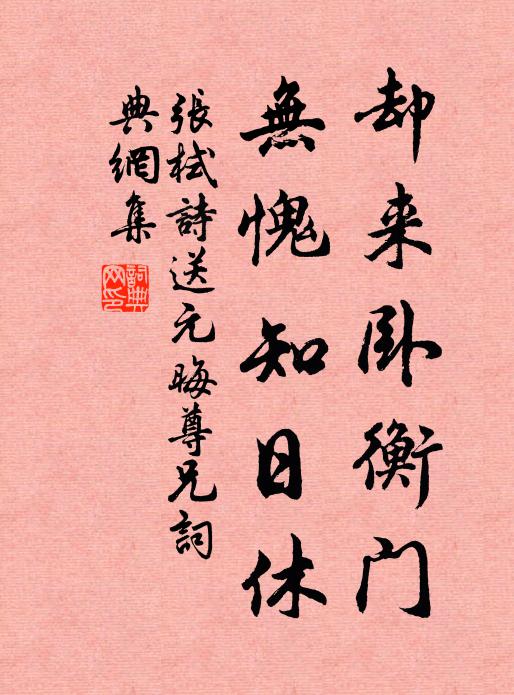 却来卧衡门
無愧知日休
張栻詩送元晦尊兄詞
典網集
詞典网印